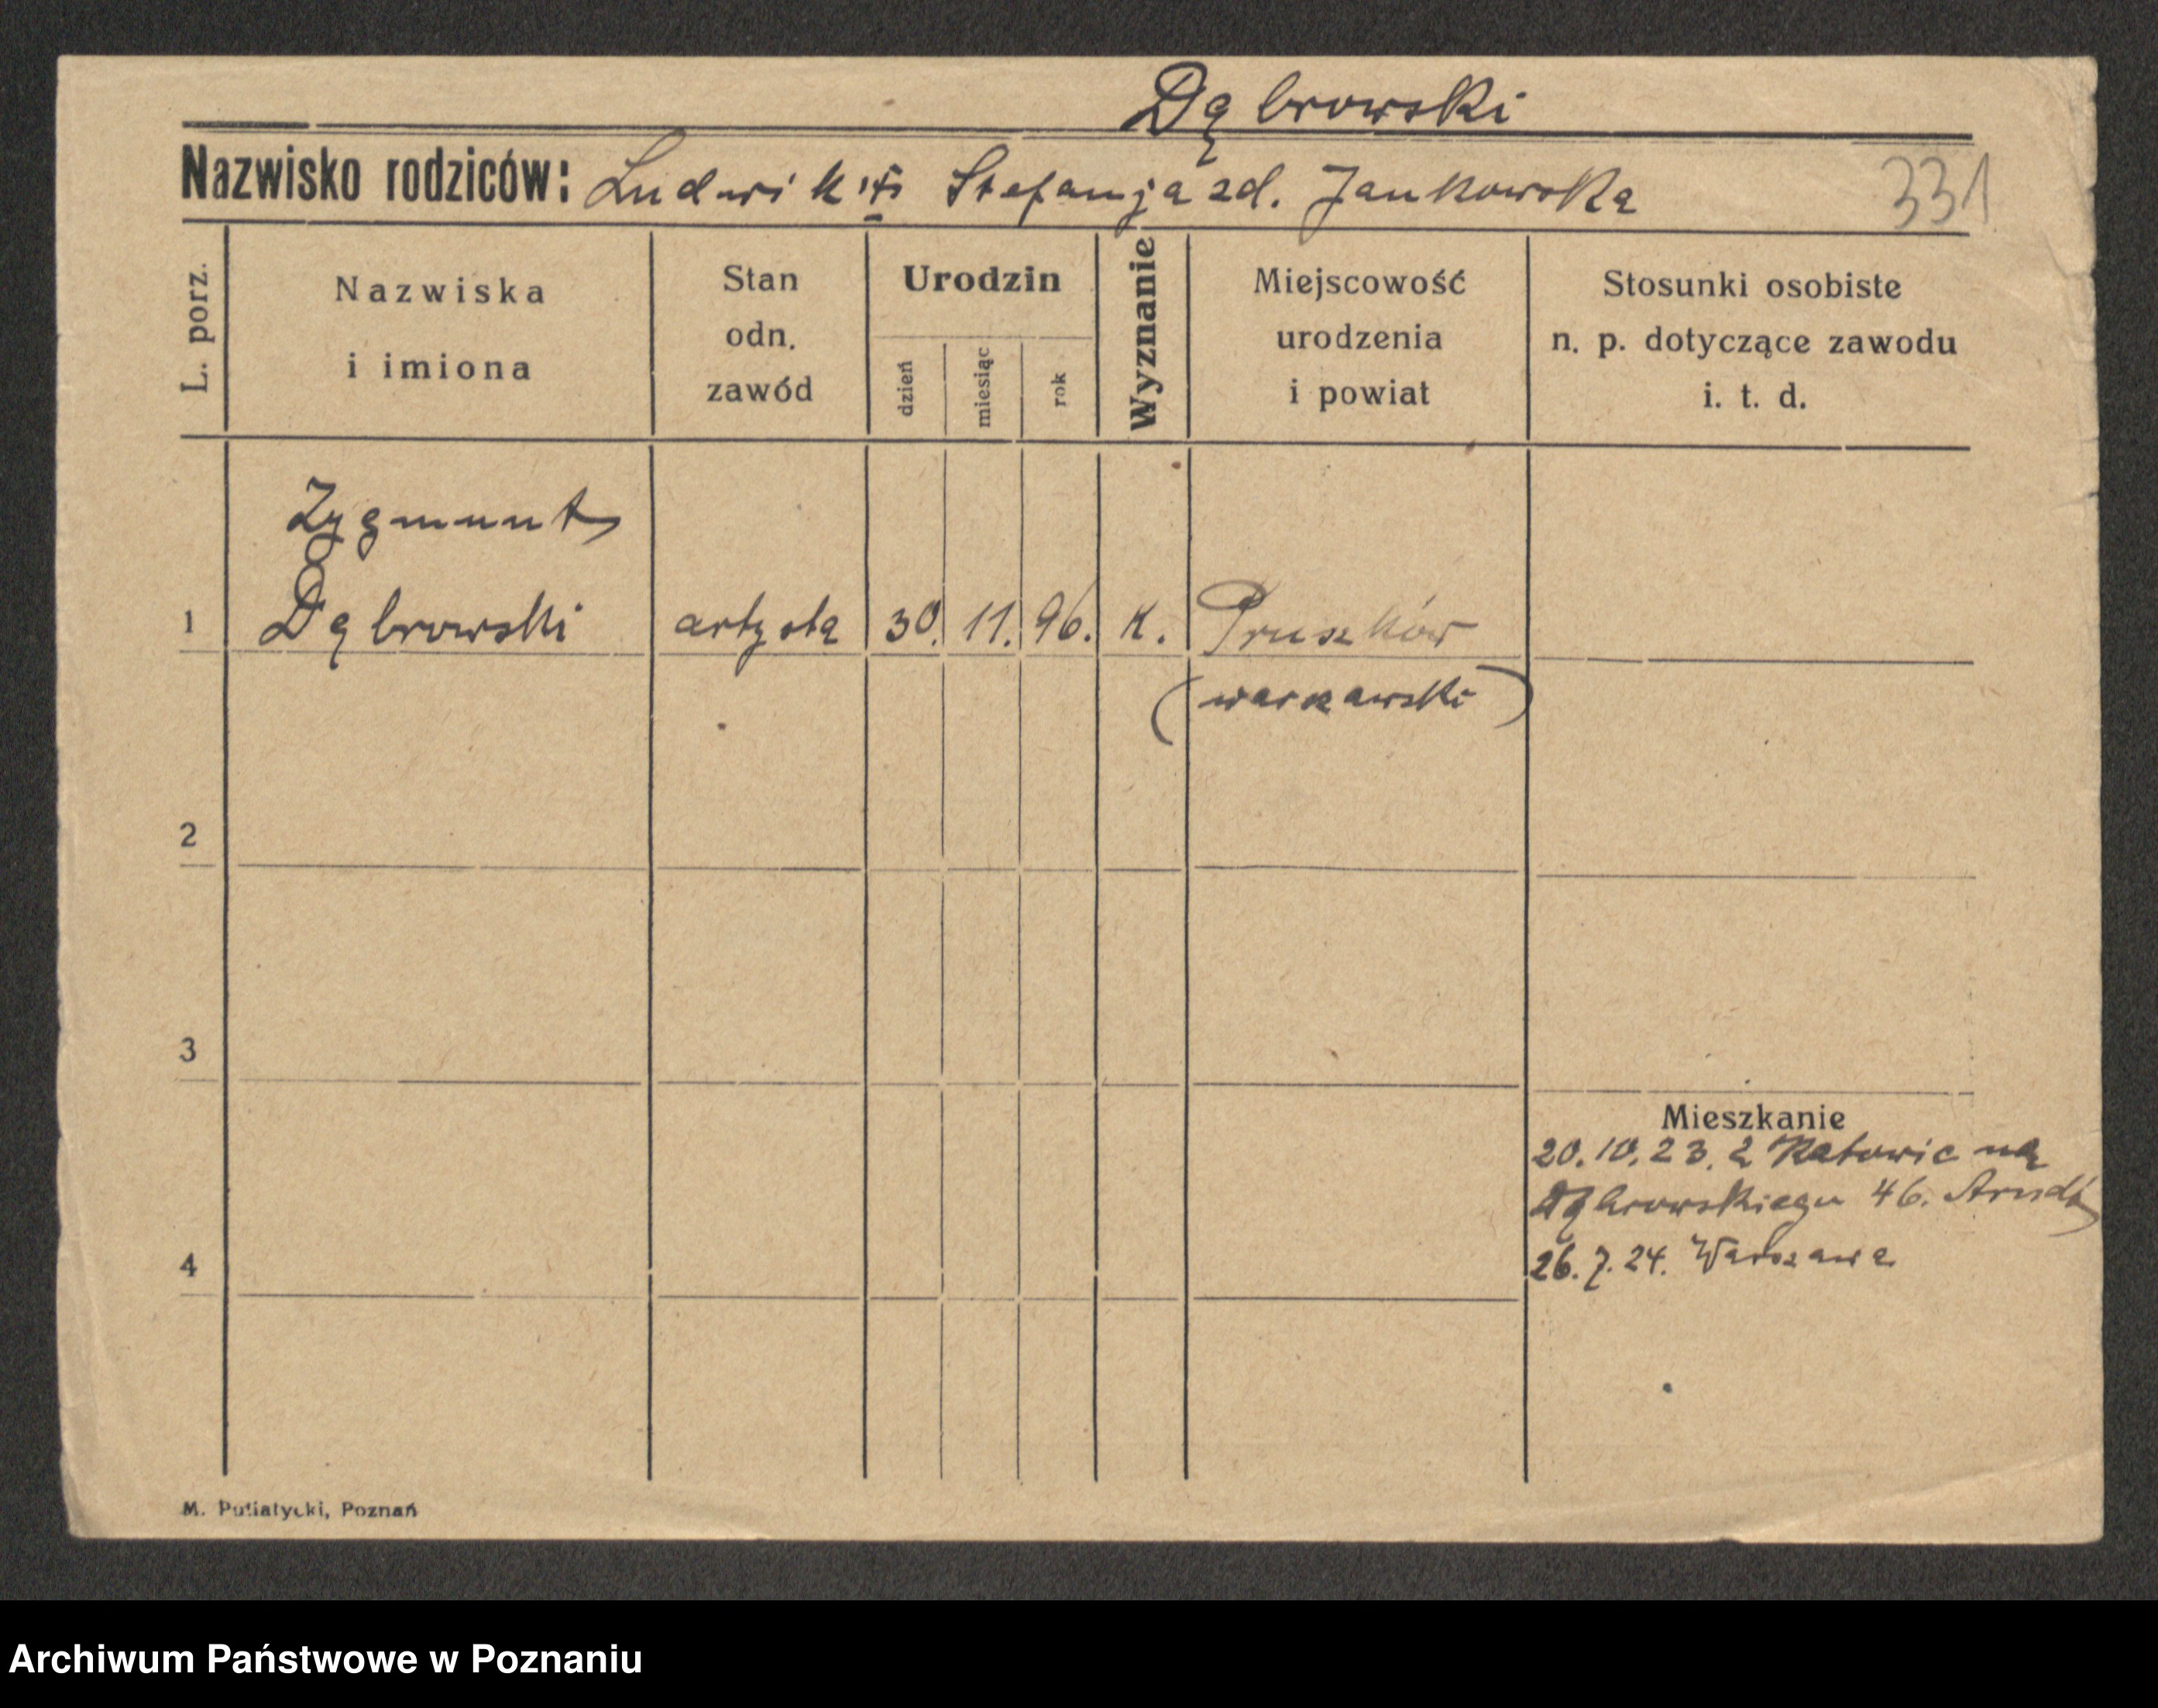 Dąbrowski
Nazwisko rodziców: Ludwik i Stefanja zd. Jankowska
331
L. porz.
Nazwiska
i imiona
Stan
odn.
zawód
Urodzin
dzień
miesiąc
rok
Wyznanie
Miejscowość
urodzenia
i powiat
Stosunki osobiste
n. p. dotyczące zawodu
i. t. d.
Zygmunt
1 Dąbrowski artysta 30. 11. 96. K. Pruszków
(warszawski)
2
3
Mieszkanie
20.10.23. z Katowic na
Dąbrowskiego 46. Arndt
4
26.7.24. Warszawa
M. Putiatycki, Poznań
Archiwum Państwowe w Poznaniu